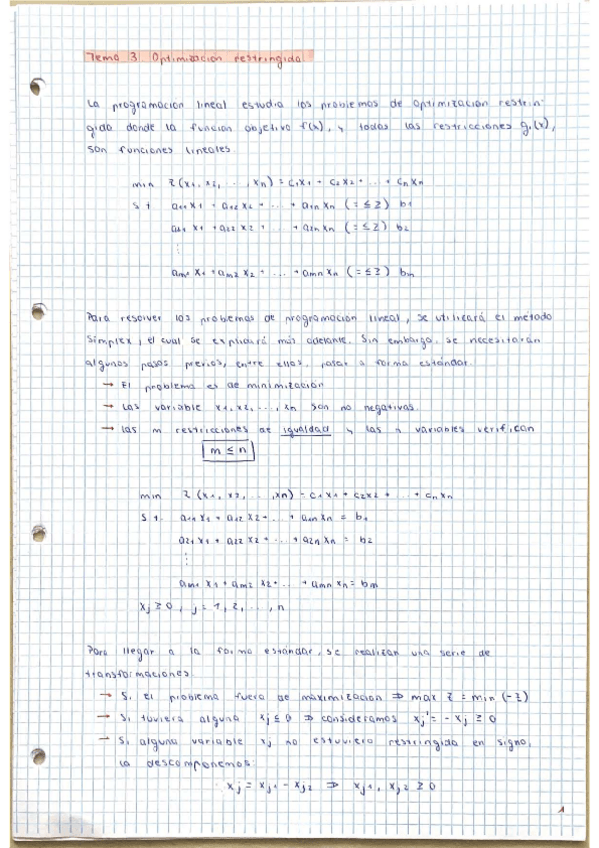 Tema 3 Optimización restringida
La programación lineal estudia los problemas de optimización restrin-
gida donde la función objetivo f(x), y todas las restricciones gᵢ(x),
son funciones lineales.
min z(x₁, x₂, ..., xₙ) = c₁x₁ + c₂x₂ + ... + cₙxₙ
s.t. a₁₁x₁ + a₁₂x₂ + ... + a₁ₙxₙ (= ≤ ≥) b₁
a₂₁x₁ + a₂₂x₂ + ... + a₂ₙxₙ (= ≤ ≥) b₂
⋮
aₘ₁x₁ + aₘ₂x₂ + ... + aₘₙxₙ (= ≤ ≥) bₘ
Para resolver los problemas de programación lineal, se utilizará el método
Simplex, el cual se explicará más adelante. Sin embargo, se necesitarán
algunos pasos previos, entre ellos, pasar a forma estándar.
→ El problema es de minimización
→ Las variable x₁, x₂, ..., xₙ son no negativas.
→ las m restricciones de igualdad y las n variables verifican
m ≤ n
min z(x₁, x₂, ..., xₙ) = c₁x₁ + c₂x₂ + ... + cₙxₙ
s.t. a₁₁x₁ + a₁₂x₂ + ... + a₁ₙxₙ = b₁
a₂₁x₁ + a₂₂x₂ + ... + a₂ₙxₙ = b₂
⋮
aₘ₁x₁ + aₘ₂x₂ + ... + aₘₙxₙ = bₘ
xⱼ ≥ 0, j = 1, 2, ..., n
Para llegar a la forma estándar, se realizan una serie de
transformaciones
→ Si el problema fuera de maximización ⇒ max z = min (-z)
→ Si tuviera alguna xⱼ ≤ 0 ⇒ consideramos xⱼ' = -xⱼ ≥ 0
→ Si alguna variable xⱼ no estuviera restringida en signo,
la descomponemos:
xⱼ = xⱼ₁ - xⱼ₂ ⇒ xⱼ₁, xⱼ₂ ≥ 0
1